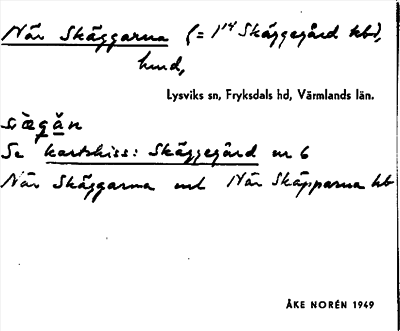 När Skäggarna (= 1/4 Skäggegård hbd,
hmd,
Lysviks sn, Fryksdals hd, Värmlands län.
Se kartskiss: Skäggegård nr 6
När Skäggarna url När Skäpparna hb
ÅKE NORÉN 1949